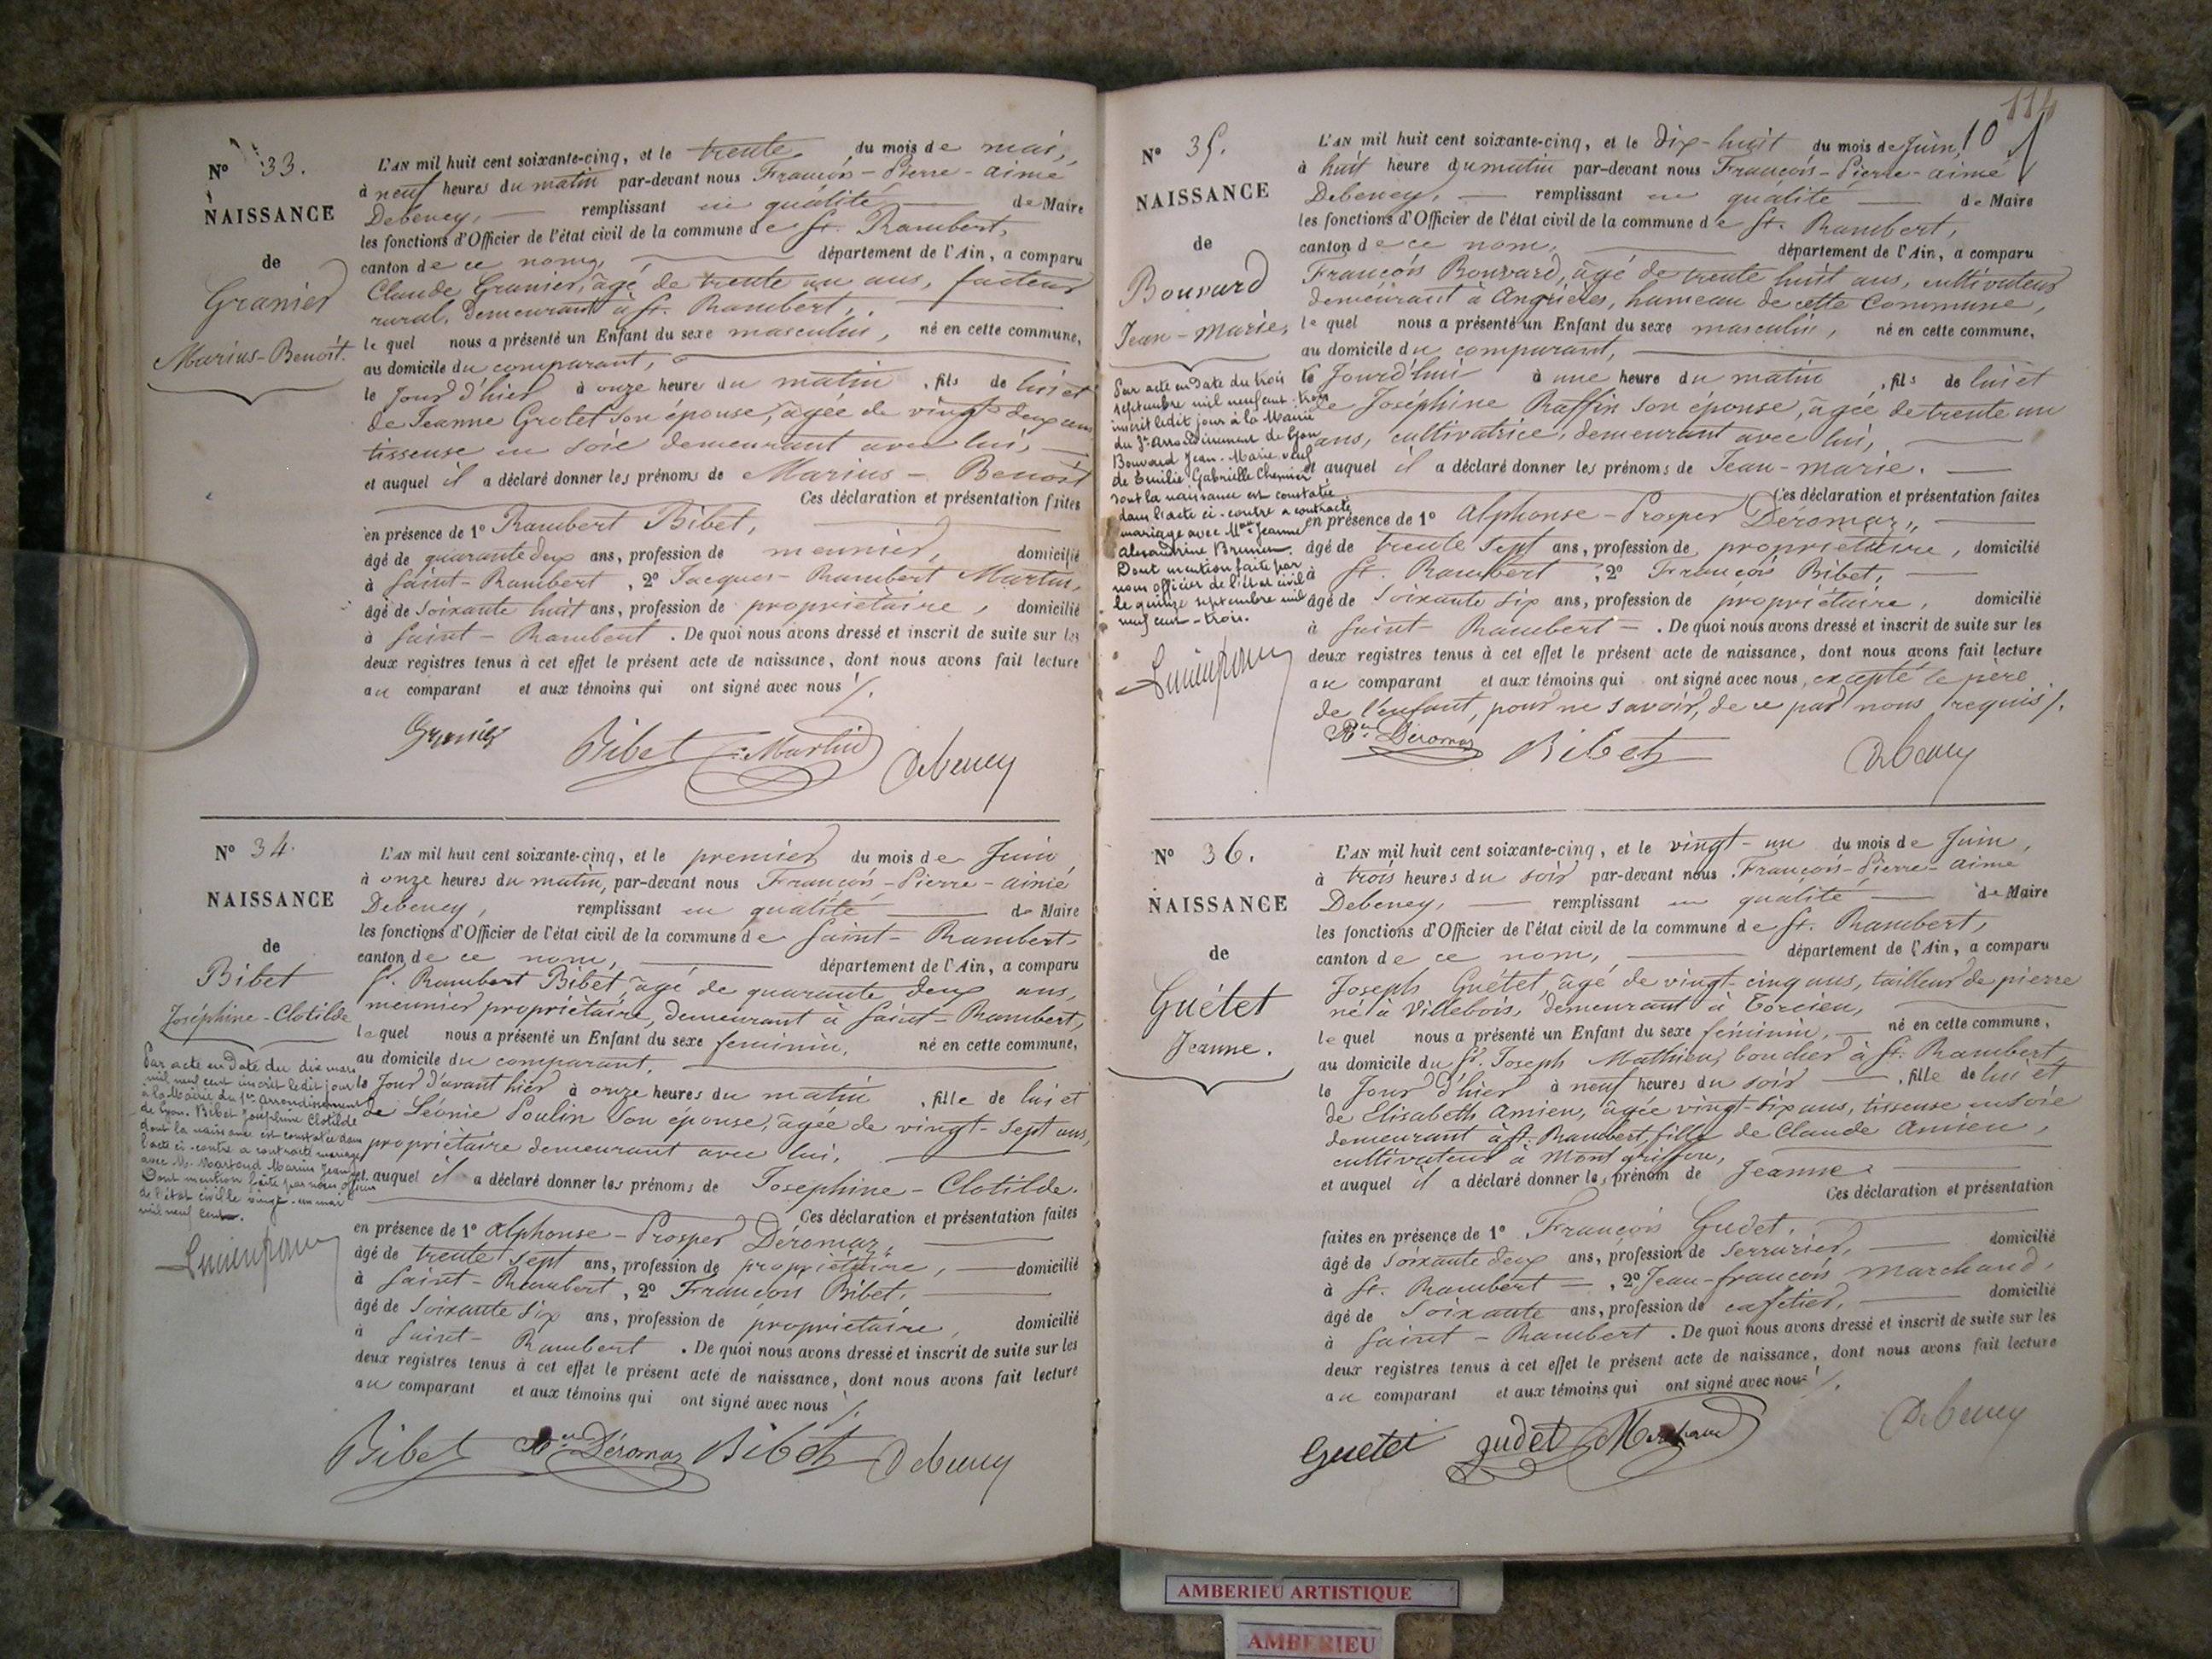 N° 33.
NAISSANCE
de
Granier
Marius-Benoit.
L'AN mil huit cent soixante-cinq, et le trente du mois de mai,
à neuf heures du matin par-devant nous François-Pierre-aimé
Debeney, remplissant en qualité de Maire
les fonctions d'Officier de l'état civil de la commune de St. Rambert,
canton de ce nom, département de l'Ain, a comparu
Claude Granier, âgé de trente un ans, facteur
rural, demeurant à St. Rambert,
lequel nous a présenté un Enfant du sexe masculin, né en cette commune,
au domicile du comparant,
le jour d'hier à onze heures du matin, fils de lui et
de Jeanne Grotet son épouse, âgée de vingt deux ans
tisseuse en soie demeurant avec lui,
et auquel il a déclaré donner les prénoms de Marius-Benoit
Ces déclaration et présentation faites
en présence de 1° Rambert Bibet,
âgé de quarante deux ans, profession de meunier, domicilié
à Saint-Rambert, 2° Jacques-Rambert Martin,
âgé de Soixante huit ans, profession de propriétaire, domicilié
à Saint-Rambert. De quoi nous avons dressé et inscrit de suite sur les
deux registres tenus à cet effet le présent acte de naissance, dont nous avons fait lecture
au comparant et aux témoins qui ont signé avec nous /.
Granier Bibet Martin Debeney
N° 34.
NAISSANCE
de
Bibet
Joséphine-Clotilde
Par acte en date du dix mars
mil neuf cent inscrit ledit jour
à la Mairie du 1er arrondissement
de Lyon. Bibet Joséphine Clotilde
dont la naissance est constatée dans
l'acte ci-contre a contracté mariage
avec M. Martoud Marius Jean
Dont mention faite par nous officier
de l'état civil le vingt-un mai
mil neuf cent.
L'AN mil huit cent soixante-cinq, et le premier du mois de Juin
à onze heures du matin, par-devant nous François-Pierre-aimé
Debeney, remplissant en qualité de Maire
les fonctions d'Officier de l'état civil de la commune de Saint-Rambert,
canton de ce nom, département de l'Ain, a comparu
St. Rambert Bibet âgé de quarante deux ans,
meunier propriétaire, demeurant à Saint-Rambert,
lequel nous a présenté un Enfant du sexe feminin, né en cette commune,
au domicile du comparant,
le Jour d'avant hier à onze heures du matin, fille de lui et
de Léonie Poulin son épouse, âgée de vingt-sept ans,
propriétaire demeurant avec lui,
et auquel il a déclaré donner les prénoms de Josephine-Clotilde.
Ces déclaration et présentation faites
en présence de 1° Alphonse-Prosper Déromaz,
âgé de trente sept ans, profession de propriétaire, domicilié
à Saint-Rambert, 2° François Bibet,
âgé de Soixante six ans, profession de propriétaire, domicilié
à Saint-Rambert. De quoi nous avons dressé et inscrit de suite sur les
deux registres tenus à cet effet le présent acte de naissance, dont nous avons fait lecture
au comparant et aux témoins qui ont signé avec nous /.
Bibet Déromaz Bibet Debeney
114
10
N° 35.
NAISSANCE
de
Bouvard
Jean-Marie,
Par acte en date du trois
septembre mil neuf cent-trois
inscrit ledit jour à la Mairie
du 3e arrondissement de Lyon
Bouvard Jean-Marie veuf
de Emilie Gabrielle
dont la naissance est constatée
dans l'acte ci-contre a contracté
mariage avec Jeanne
Alexandrine
Dont mention faite par
nous officier de l'état civil
le quinze septembre mil
neuf cent-trois.
L'AN mil huit cent soixante-cinq, et le Dix-huit du mois de Juin,
à huit heure du matin par-devant nous François-Pierre-aimé
Debeney, remplissant en qualité de Maire
les fonctions d'Officier de l'état civil de la commune de St. Rambert,
canton de ce nom, département de l'Ain, a comparu
François Bouvard, âgé de trente huit ans, cultivateur
demeurant à Angrières, hameau de cette Commune,
lequel nous a présenté un Enfant du sexe masculin, né en cette commune,
au domicile du comparant,
le Jourd'hui à une heure du matin, fils de lui et
de Joséphine Raffin son épouse, âgée de trente un
ans, cultivatrice, demeurant avec lui,
et auquel il a déclaré donner les prénoms de Jean-marie.
Ces déclaration et présentation faites
en présence de 1° Alphonse-Prosper Déromaz,
âgé de trente sept ans, profession de propriétaire, domicilié
à St. Rambert, 2° François Bibet,
âgé de Soixante six ans, profession de propriétaire, domicilié
à Saint-Rambert. De quoi nous avons dressé et inscrit de suite sur les
deux registres tenus à cet effet le présent acte de naissance, dont nous avons fait lecture
au comparant et aux témoins qui ont signé avec nous, excepté le père
de l'enfant, pour ne savoir, de ce par nous requis /.
Déromaz Bibet Debeney
N° 36.
NAISSANCE
de
Guétet
Jeanne.
L'AN mil huit cent soixante-cinq, et le vingt-un du mois de Juin,
à trois heures du soir par-devant nous François-Pierre-aimé
Debeney, remplissant en qualité de Maire
les fonctions d'Officier de l'état civil de la commune de St. Rambert,
canton de ce nom, département de l'Ain, a comparu
Joseph Guétet, âgé de vingt-cinq ans, tailleur de pierre
né à Villebois, demeurant à Torcieu,
lequel nous a présenté un Enfant du sexe féminin, né en cette commune,
au domicile du Sr. Joseph Mathieu, boucher à St. Rambert,
le Jour d'hier à neuf heures du soir, fille de lui et
de Elisabeth Amieu, âgée vingt-six ans, tisseuse en soie
demeurant à St. Rambert, fille de Claude Amieu,
cultivateur à Montgriffon,
et auquel il a déclaré donner le prénom de Jeanne
Ces déclaration et présentation
faites en présence de 1° François Gudet.
âgé de Soixante deux ans, profession de Serrurier, domicilié
à St. Rambert, 2° Jean-françois Marchand,
âgé de Soixante ans, profession de cafetier, domicilié
à Saint-Rambert. De quoi nous avons dressé et inscrit de suite sur les
deux registres tenus à cet effet le présent acte de naissance, dont nous avons fait lecture
au comparant et aux témoins qui ont signé avec nous /.
Guétet gudet Marchand Debeney
AMBERIEU ARTISTIQUE
AMBERIEU